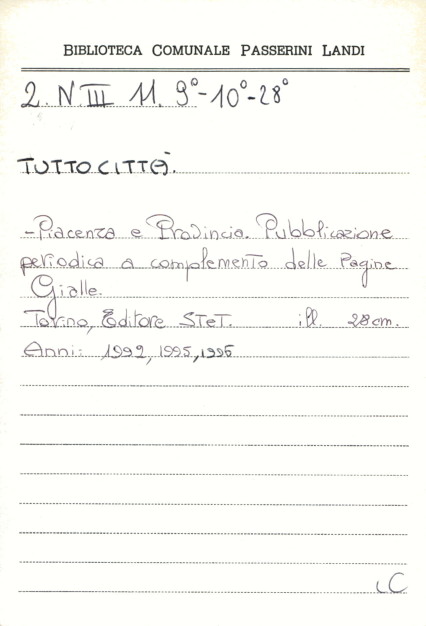 BIBLIOTECA COMUNALE PASSERINI LANDI
2. N. III 11. 9°-10°-28°
TUTTO CITTÀ.
-Piacenza e Provincia. Pubblicazione
periodica a complemento delle Pagine
Gialle.
Torino, Editore STET. ill. 28 cm.
Anni: 1992, 1995, 1996
iC